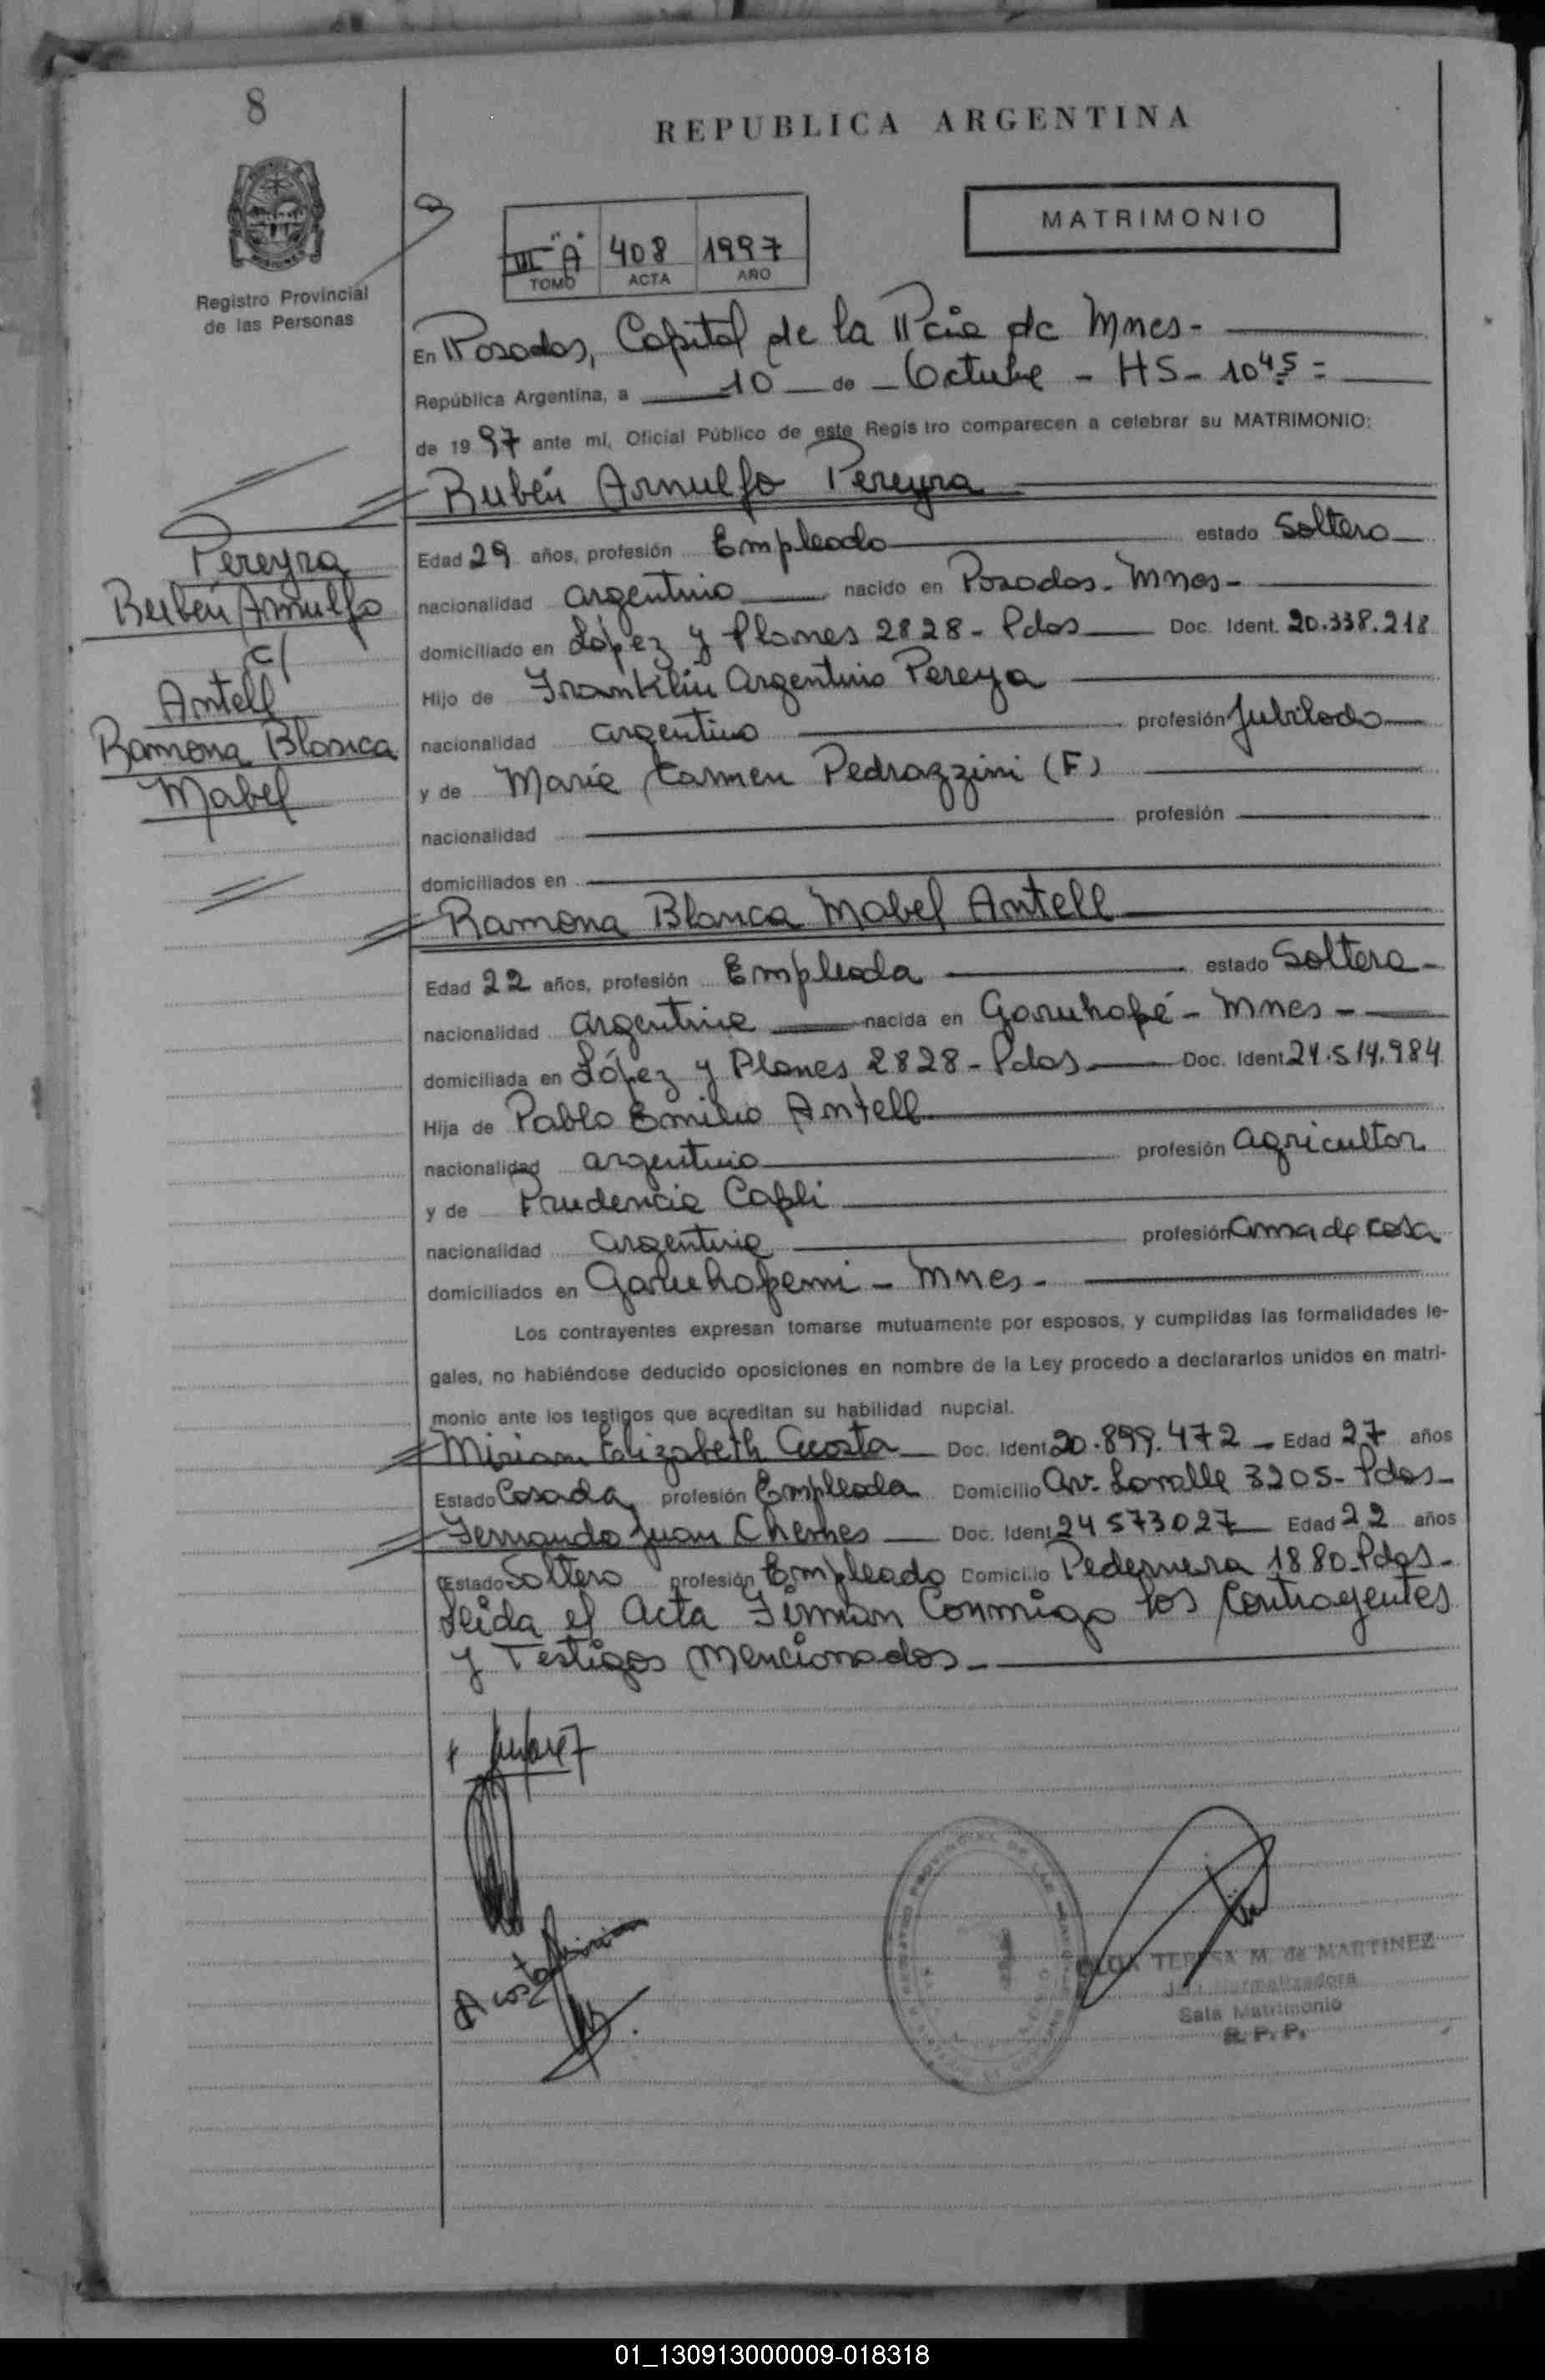 8
REPUBLICA ARGENTINA
MATRIMONIO
III "A" 408 1997
TOMO ACTA AÑO
Registro Provincial
de las Personas
En Posadas, Capital de la Pcia de Mnes-
República Argentina, a 10 de Octubre - HS- 10 45 =
de 1997 ante mí, Oficial Público de este Registro comparecen a celebrar su MATRIMONIO:
Rubén Arnulfo Pereyra
Edad 29 años, profesión Empleado estado Soltero
nacionalidad argentino nacido en Posadas- Mnes-
domiciliado en López y Planes 2828- Pdas Doc. Ident. 20.338.218
Hijo de Franklin Argentino Pereya
nacionalidad argentino profesión Jubilado
y de María Carmen Pedrazzini (F)
nacionalidad profesión
domiciliados en
Ramona Blanca Mabel Antell
Edad 22 años, profesión Empleada estado Soltera-
nacionalidad argentina nacida en Garuhapé - Mnes -
domiciliada en López y Planes 2828- Pdas Doc. Ident 24.514.984
Hija de Pablo Emilio Antell
nacionalidad argentino profesión agricultor
y de Prudencia Capli
nacionalidad argentina profesión ama de casa
domiciliados en Garuhapemi - Mnes-
Los contrayentes expresan tomarse mutuamente por esposos, y cumplidas las formalidades le-
gales, no habiéndose deducido oposiciones en nombre de la Ley procedo a declararlos unidos en matri-
monio ante los testigos que acreditan su habilidad nupcial.
Miriam Elizabeth Acosta Doc. Ident 20.899.472 - Edad 27 años
Estado Casada profesión Empleada Domicilio Av. Lavalle 3205- Pdas-
Fernando Juan Chemes Doc. Ident 24573027 Edad 22 años
Estado Soltero profesión Empleado Domicilio Pedernera 1880-Pdas-
Leida el Acta Firman Conmigo los Contrayentes
y Testigos Mencionados-
Pereyra
Rubén Arnulfo
c/
Antell
Ramona Blanca
Mabel
Acosta Miriam
TERESA M. de MARTINEZ
Sala Matrimonio
R. P. P.
01_130913000009-018318